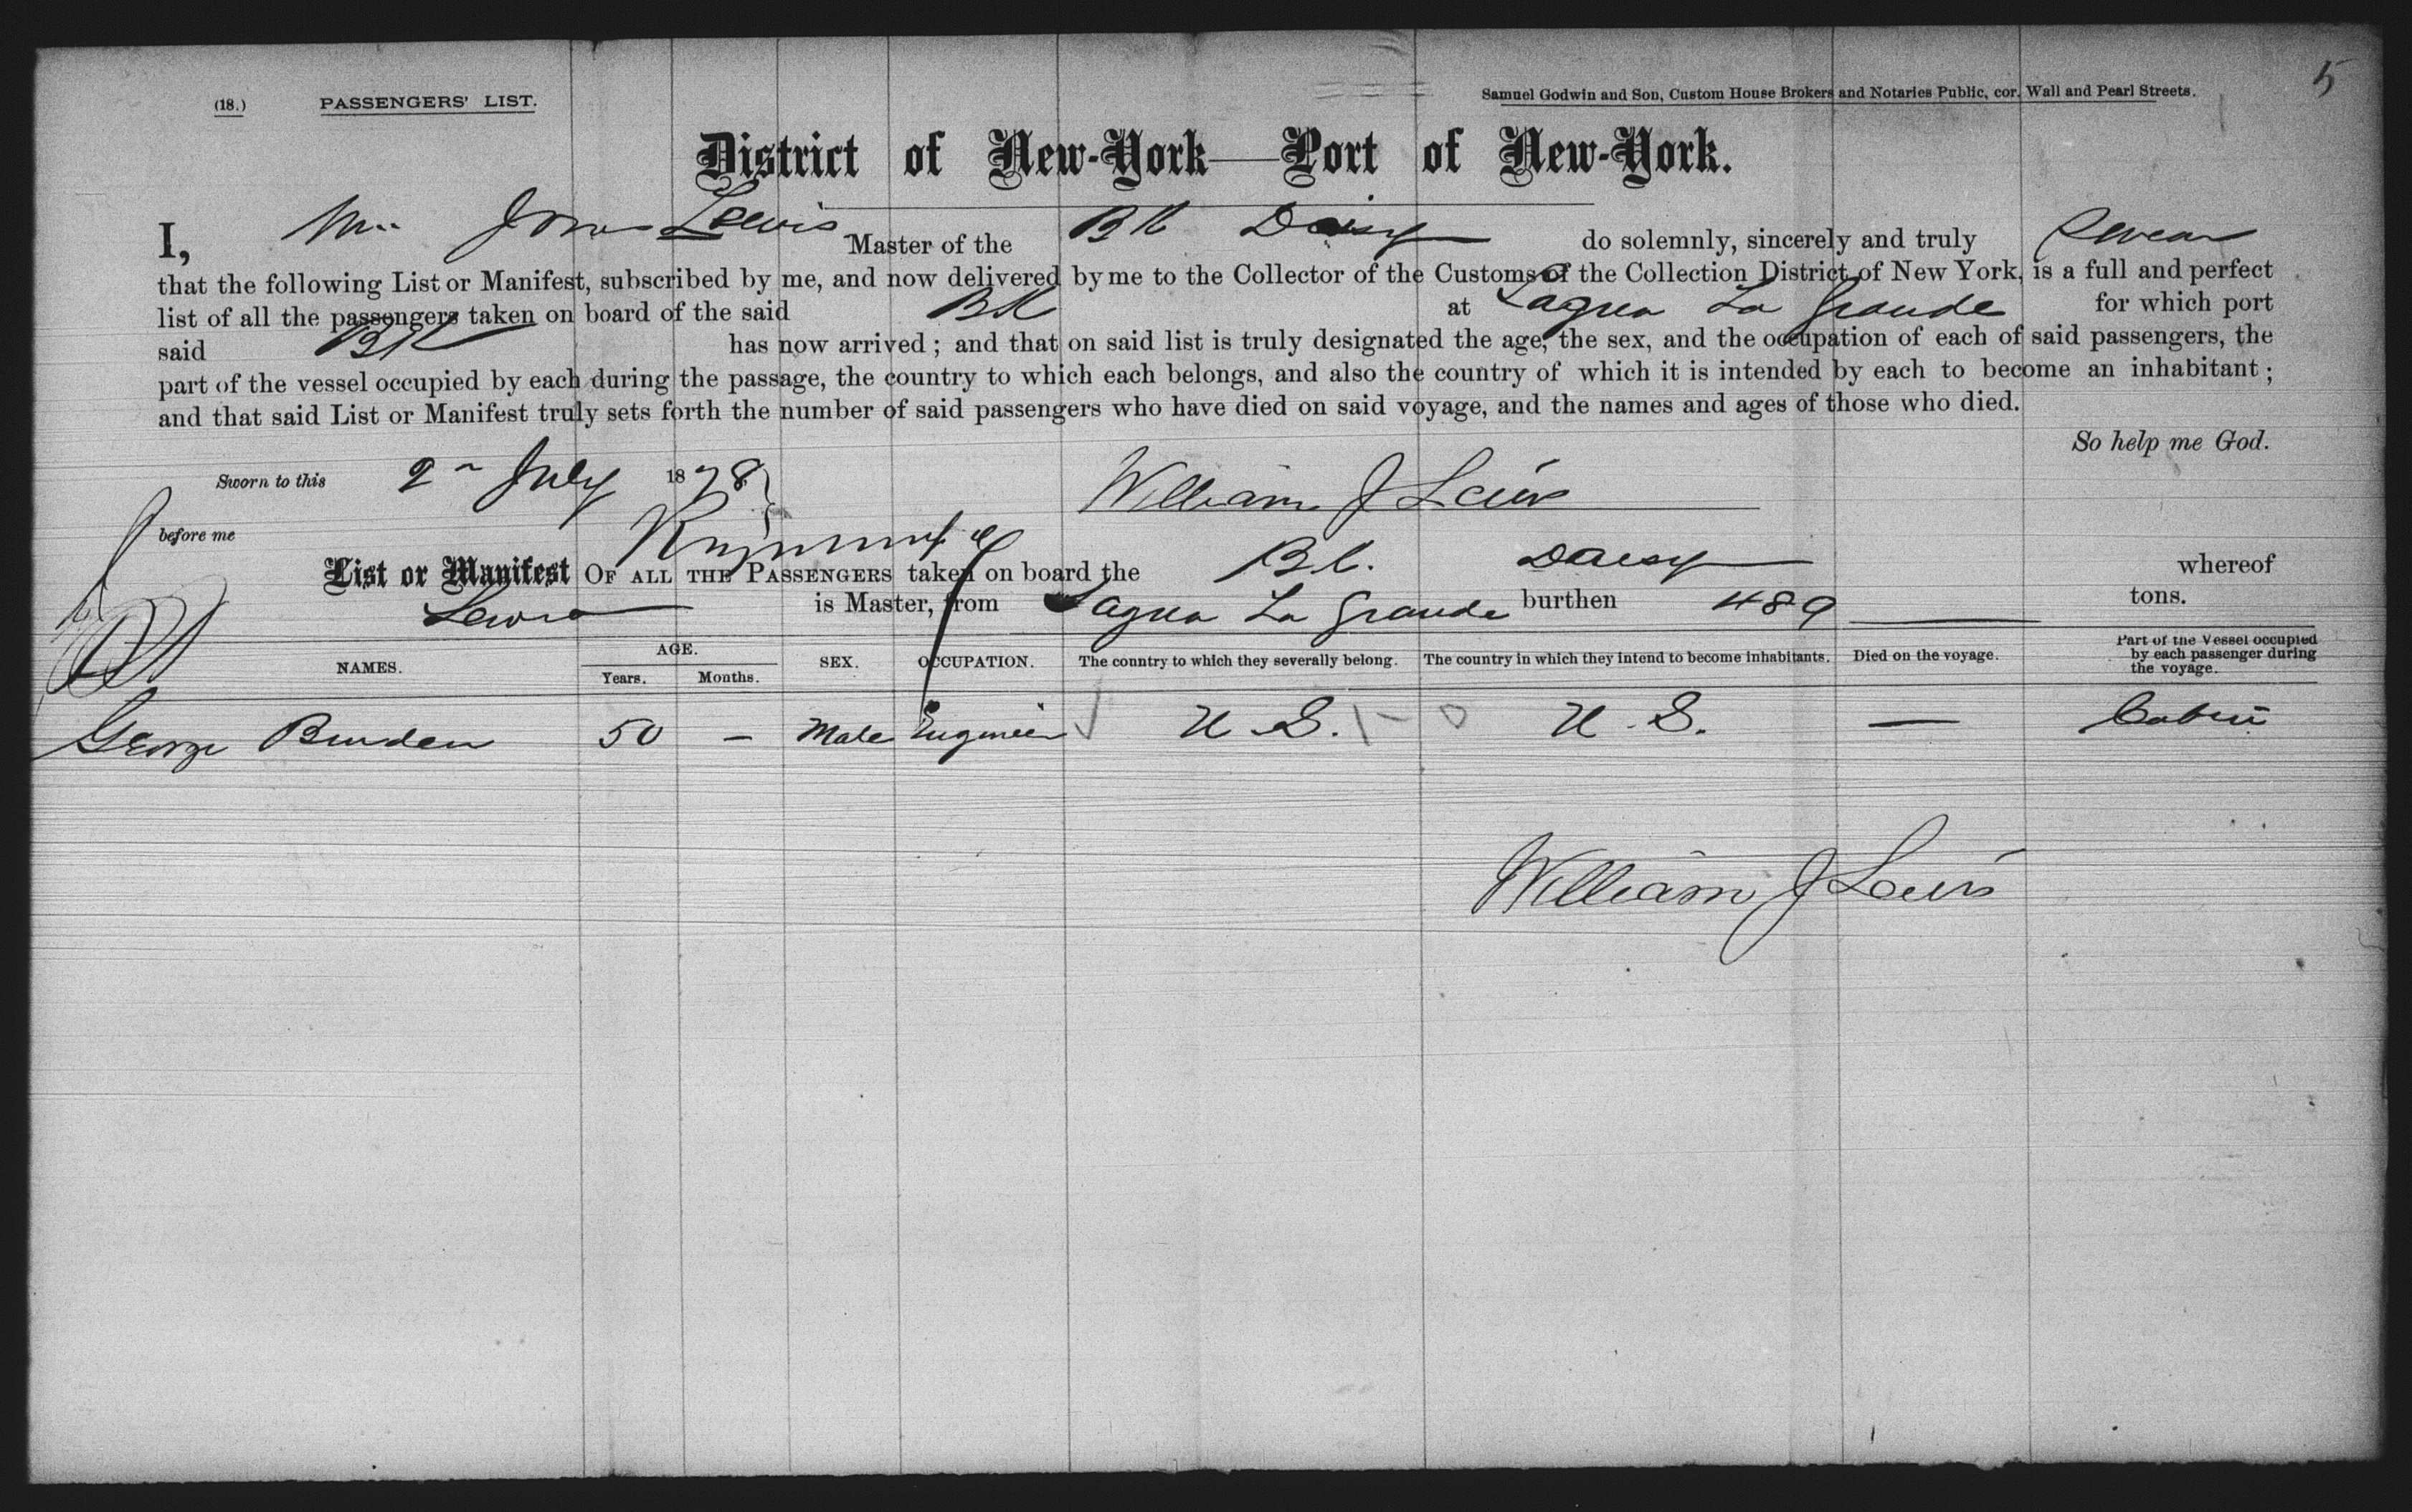 5
(18.) PASSENGERS' LIST. Samuel Godwin and Son, Custom House Brokers and Notaries Public, cor. Wall and Pearl Streets.
District of New-York—Port of New-York.
I, Wm Jones Lewis Master of the Bk Daisy do solemnly, sincerely and truly Swear
that the following List or Manifest, subscribed by me, and now delivered by me to the Collector of the Customs of the Collection District of New York, is a full and perfect
list of all the passengers taken on board of the said Bk at Sagua La Grande for which port
said Bk has now arrived; and that on said list is truly designated the age, the sex, and the occupation of each of said passengers, the
part of the vessel occupied by each during the passage, the country to which each belongs, and also the country of which it is intended by each to become an inhabitant;
and that said List or Manifest truly sets forth the number of said passengers who have died on said voyage, and the names and ages of those who died.
So help me God.
Sworn to this 2n July 1878 William J Lewis
before me
List or Manifest OF ALL THE PASSENGERS taken on board the Bk. Daisy whereof
Lewis is Master, from Sagua La Grande burthen 489 tons.
NAMES. AGE. Years. Months. SEX. OCCUPATION. The country to which they severally belong. The country in which they intend to become inhabitants. Died on the voyage. Part of the Vessel occupied by each passenger during the voyage.
George Burden 50 – Male Engineer U. S. 1 – 0 U. S. — Cabin
William J Lewis